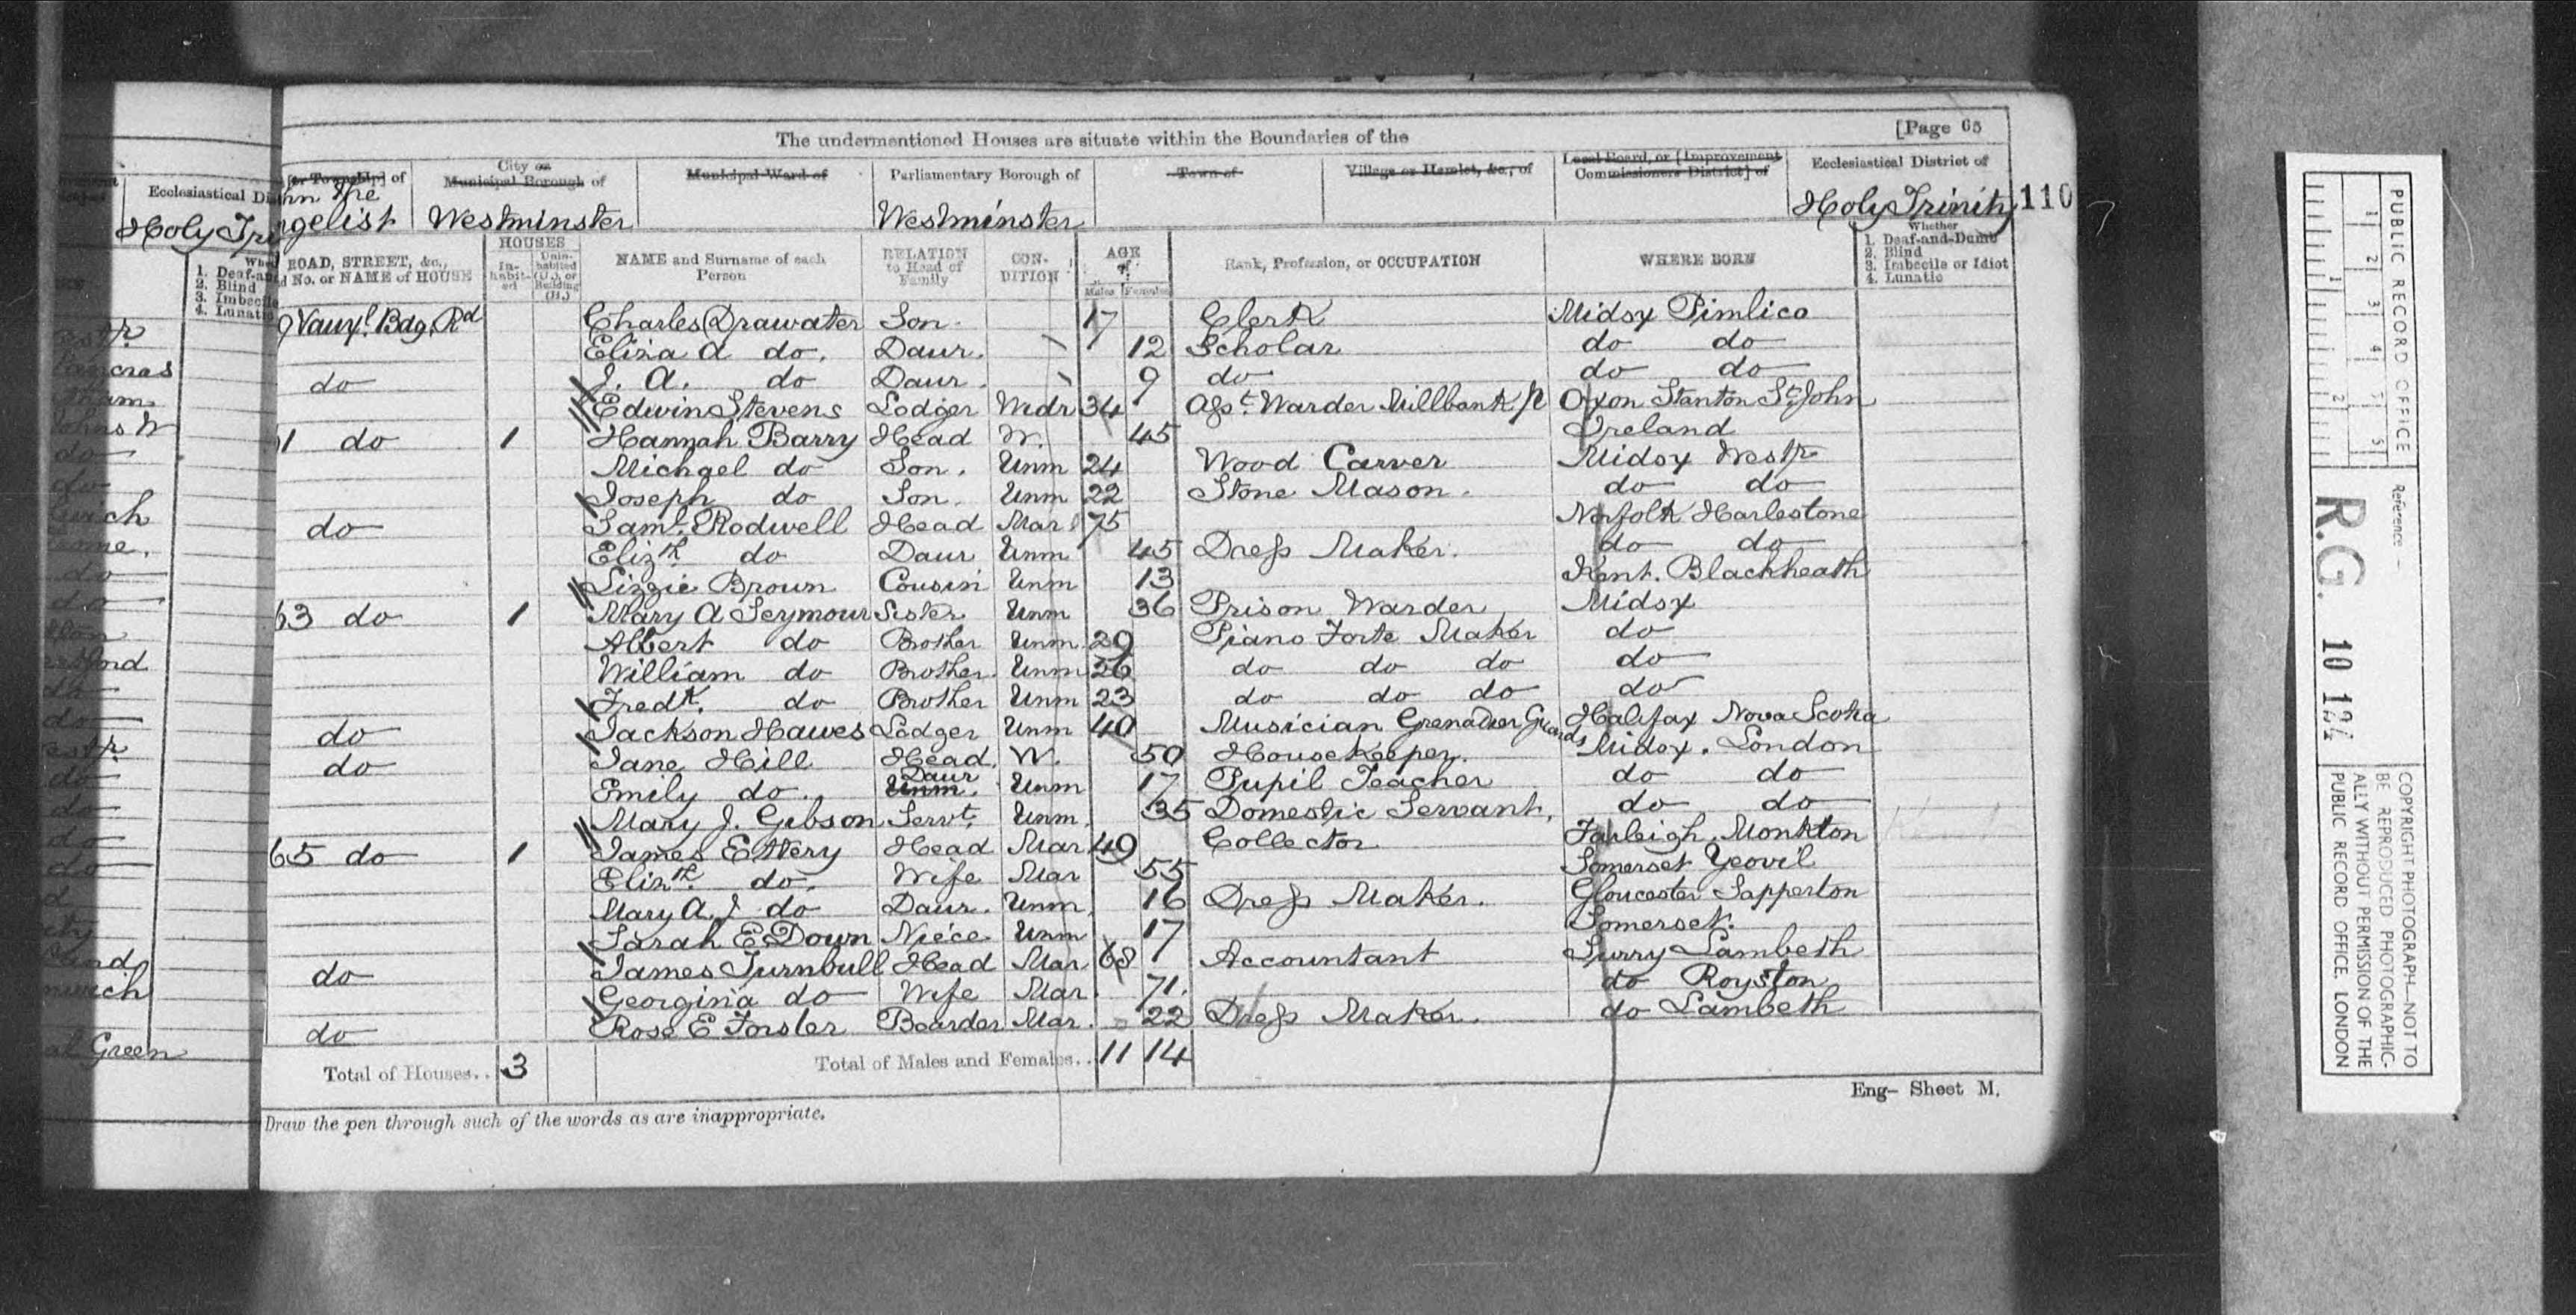 The undermentioned Houses are situate within the Boundaries of the
[Page 65
[or Township] of
City or Municipal Borough of
Municipal Ward of
Parliamentary Borough of
Town of
Village or Hamlet, &c., of
Local Board, or [Improvement Commissioners District] of
Ecclesiastical District of
the
gelist
Westminster
Westminster
Holy Trinity
110
ROAD, STREET, &c., No. or NAME of HOUSE
HOUSES
In-habit-ed
Unin-habited (U.), or Building (B.)
NAME and Surname of each Person
RELATION to Head of Family
CON-DITION
AGE of
Males
Females
Rank, Profession, or OCCUPATION
WHERE BORN
Whether
1. Deaf-and-Dumb
2. Blind
3. Imbecile or Idiot
4. Lunatic
9 Vauxl. Bdg. Rd Charles Drawater Son 17 Clerk Midsx Pimlico
Eliza A do. Daur. 12 Scholar do do
do J. A. do Daur. 9 do do do
Edwin Stevens Lodger Widr 34 Asst. Warder Millbank Oxon Stanton St. John
1 do 1 Hannah Barry Head W. 45 Ireland
Michael do Son. Unm 24 Wood Carver Midsx Westr
Joseph do Son. Unm 22 Stone Mason. do do
do Saml. Rodwell Head Mar 75 Norfolk Harlestone
Elizth. do Daur Unm 45 Dress Maker. do do
Lizzie Brown Cousin Unm 13 Kent. Blackheath
63 do 1 Mary A Seymour Sister Unm 36 Prison Warder Midsx
Albert do Brother Unm. 29 Piano Forte Maker do
William do Brother. Unm 26 do do do do
Fredk. do Brother Unm 23 do do do do
do Jackson Hawes Lodger Unm 40 Musician Grenadier Guards Halifax Nova Scotia
do Jane Hill Head. W. 50 House Keeper. Midsx. London
Emily do. Daur Unm. Unm 17 Pupil Teacher do do
Mary J. Gibson Servt. Unm. 35 Domestic Servant, do do
65 do 1 James Ettery Head Mar 49 Collector Farleigh. Monkton
Elizth. do. Wife Mar 55 Somerset Yeovil
Mary A. J do Daur. Unm. 16 Dress Maker. Gloucester Sapperton
Sarah E Down Niece Unm 17 Somerset.
do James Turnbull Head Mar 68 Accountant Surry Lambeth
Georgina do Wife Mar. 71. do Royston
do Rose E Forster Boarder Mar. 22 Dress Maker. do Lambeth
Total of Houses.. 3
Total of Males and Females.. 11 14
Eng- Sheet M.
Draw the pen through such of the words as are inappropriate.
PUBLIC RECORD OFFICE
Reference -
R.G. 10 124
COPYRIGHT PHOTOGRAPH—NOT TO BE REPRODUCED PHOTOGRAPHICALLY WITHOUT PERMISSION OF THE PUBLIC RECORD OFFICE, LONDON